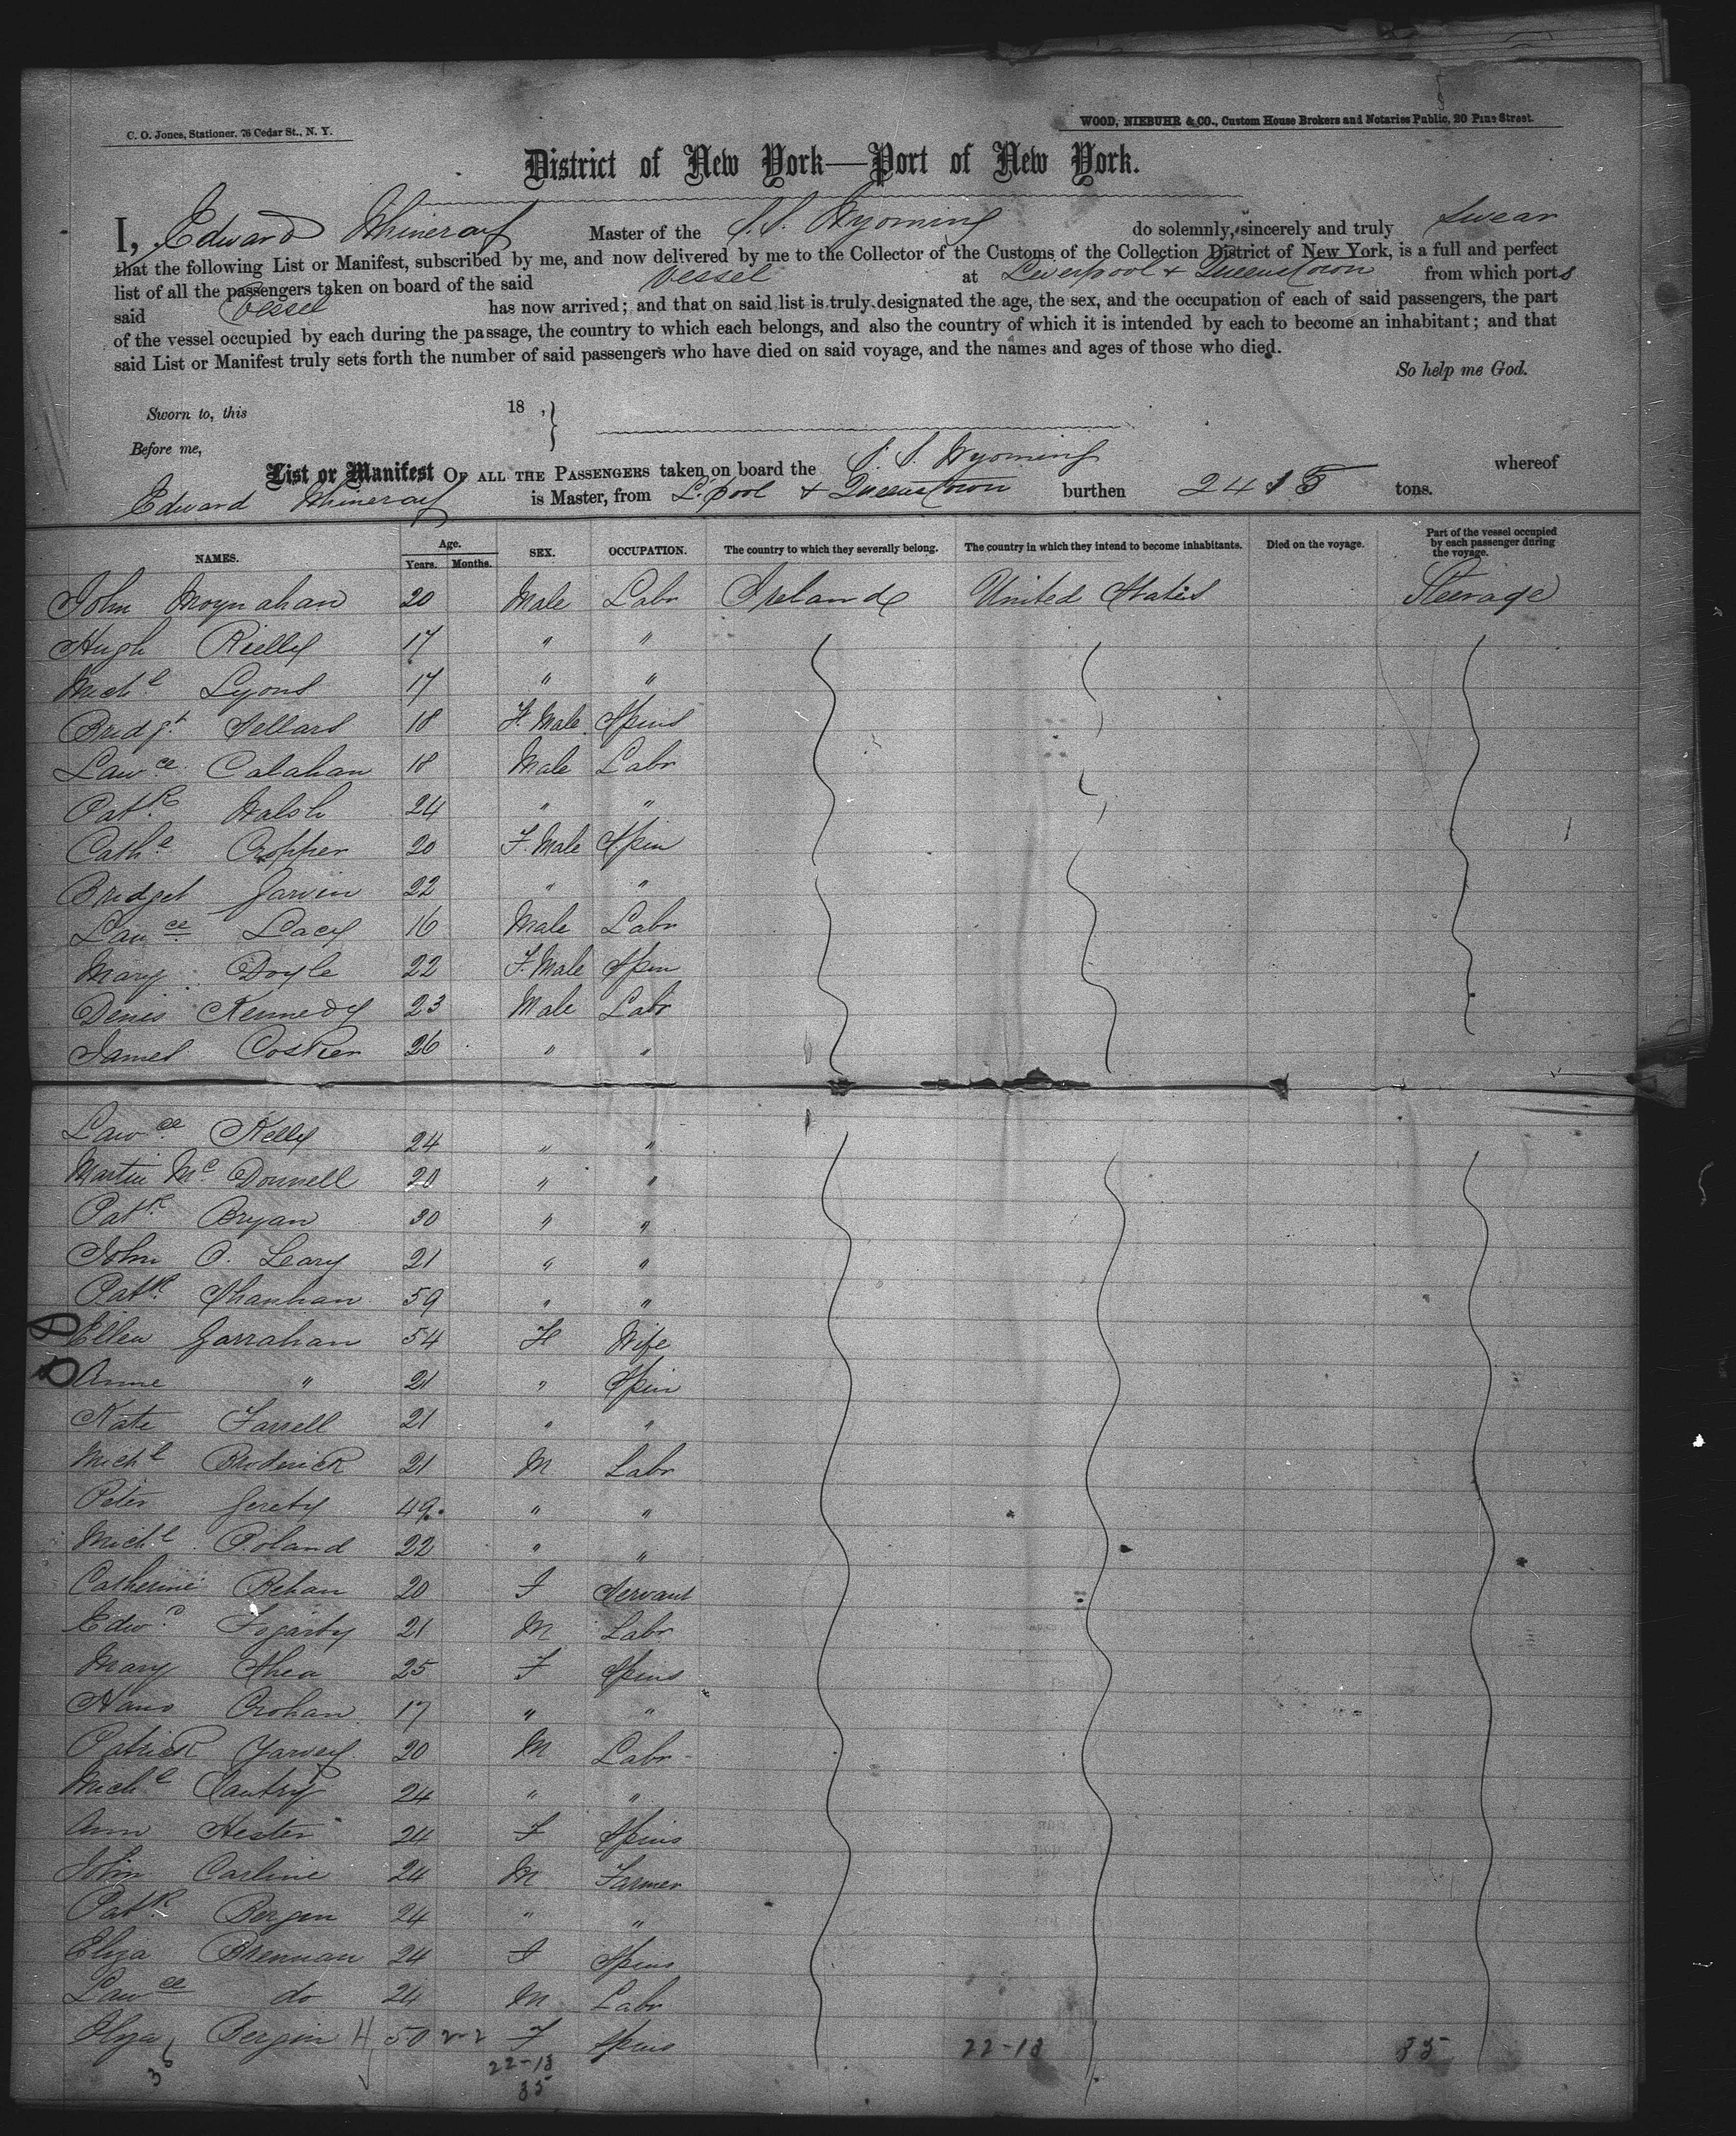 C. O. Jones, Stationer, 76 Cedar St., N. Y.
WOOD, NIEBUHR & CO., Custom House Brokers and Notaries Public, 20 Pine Street.
District of New York—Port of New York.
I, Edward Whineray Master of the S.S. Wyoming do solemnly, sincerely and truly swear
that the following List or Manifest, subscribed by me, and now delivered by me to the Collector of the Customs of the Collection District of New York, is a full and perfect
list of all the passengers taken on board of the said vessel at Liverpool & Queenstown from which ports
said vessel has now arrived; and that on said list is truly designated the age, the sex, and the occupation of each of said passengers, the part
of the vessel occupied by each during the passage, the country to which each belongs, and also the country of which it is intended by each to become an inhabitant; and that
said List or Manifest truly sets forth the number of said passengers who have died on said voyage, and the names and ages of those who died.
So help me God.
Sworn to, this 18 ,
Before me,
List or Manifest OF ALL THE PASSENGERS taken on board the S. S. Wyoming whereof
Edward Whineray is Master, from L'pool & Queenstown burthen 2415 tons.
NAMES. Age. Years. Months. SEX. OCCUPATION. The country to which they severally belong. The country in which they intend to become inhabitants. Died on the voyage. Part of the vessel occupied by each passenger during the voyage.
John Moynahan 20 Male Labr Ireland United States Steerage
Hugh Rielly 17 " "
Michl Lyons 17 " "
Bridgt Sellars 18 F. Male Spins
Lawce Calahan 18 Male Labr
Patk Walsh 24 " "
Cathe Cropper 20 F. Male Spin
Bridget Garvin 22 " "
Lawce Lacy 16 Male Labr
Mary Doyle 22 F. Male Spin
Denis Kennedy 23 Male Labr
James Cosker 26 " "
Lawce Kelly 24 " "
Martin McDonnell 20 " "
Patk Bryan 30 " "
John O. Leary 21 " "
Patk Shanhan 59 " "
Ellen Garrahan 54 F Wife
Anne " 21 " Spin
Kate Farrell 21 " "
Michl Broderick 21 M Labr
Peter Gerety 49 " "
Michl Poland 22 " "
Catherine Behan 20 F Servant
Edwd Fogarty 21 M Labr
Mary Shea 25 F Spins
Crohan 17 " "
Patrick Garvey 20 M Labr
Michl 24 " "
Ann Hester 24 F Spins
John Carline 24 M Farmer
Patk Bergen 24 " "
Eliza Brennan 24 F Spins
Lawce do 24 M Labr
Eliza Bergin 50 F Spins
22-13 22-13 35
35
36